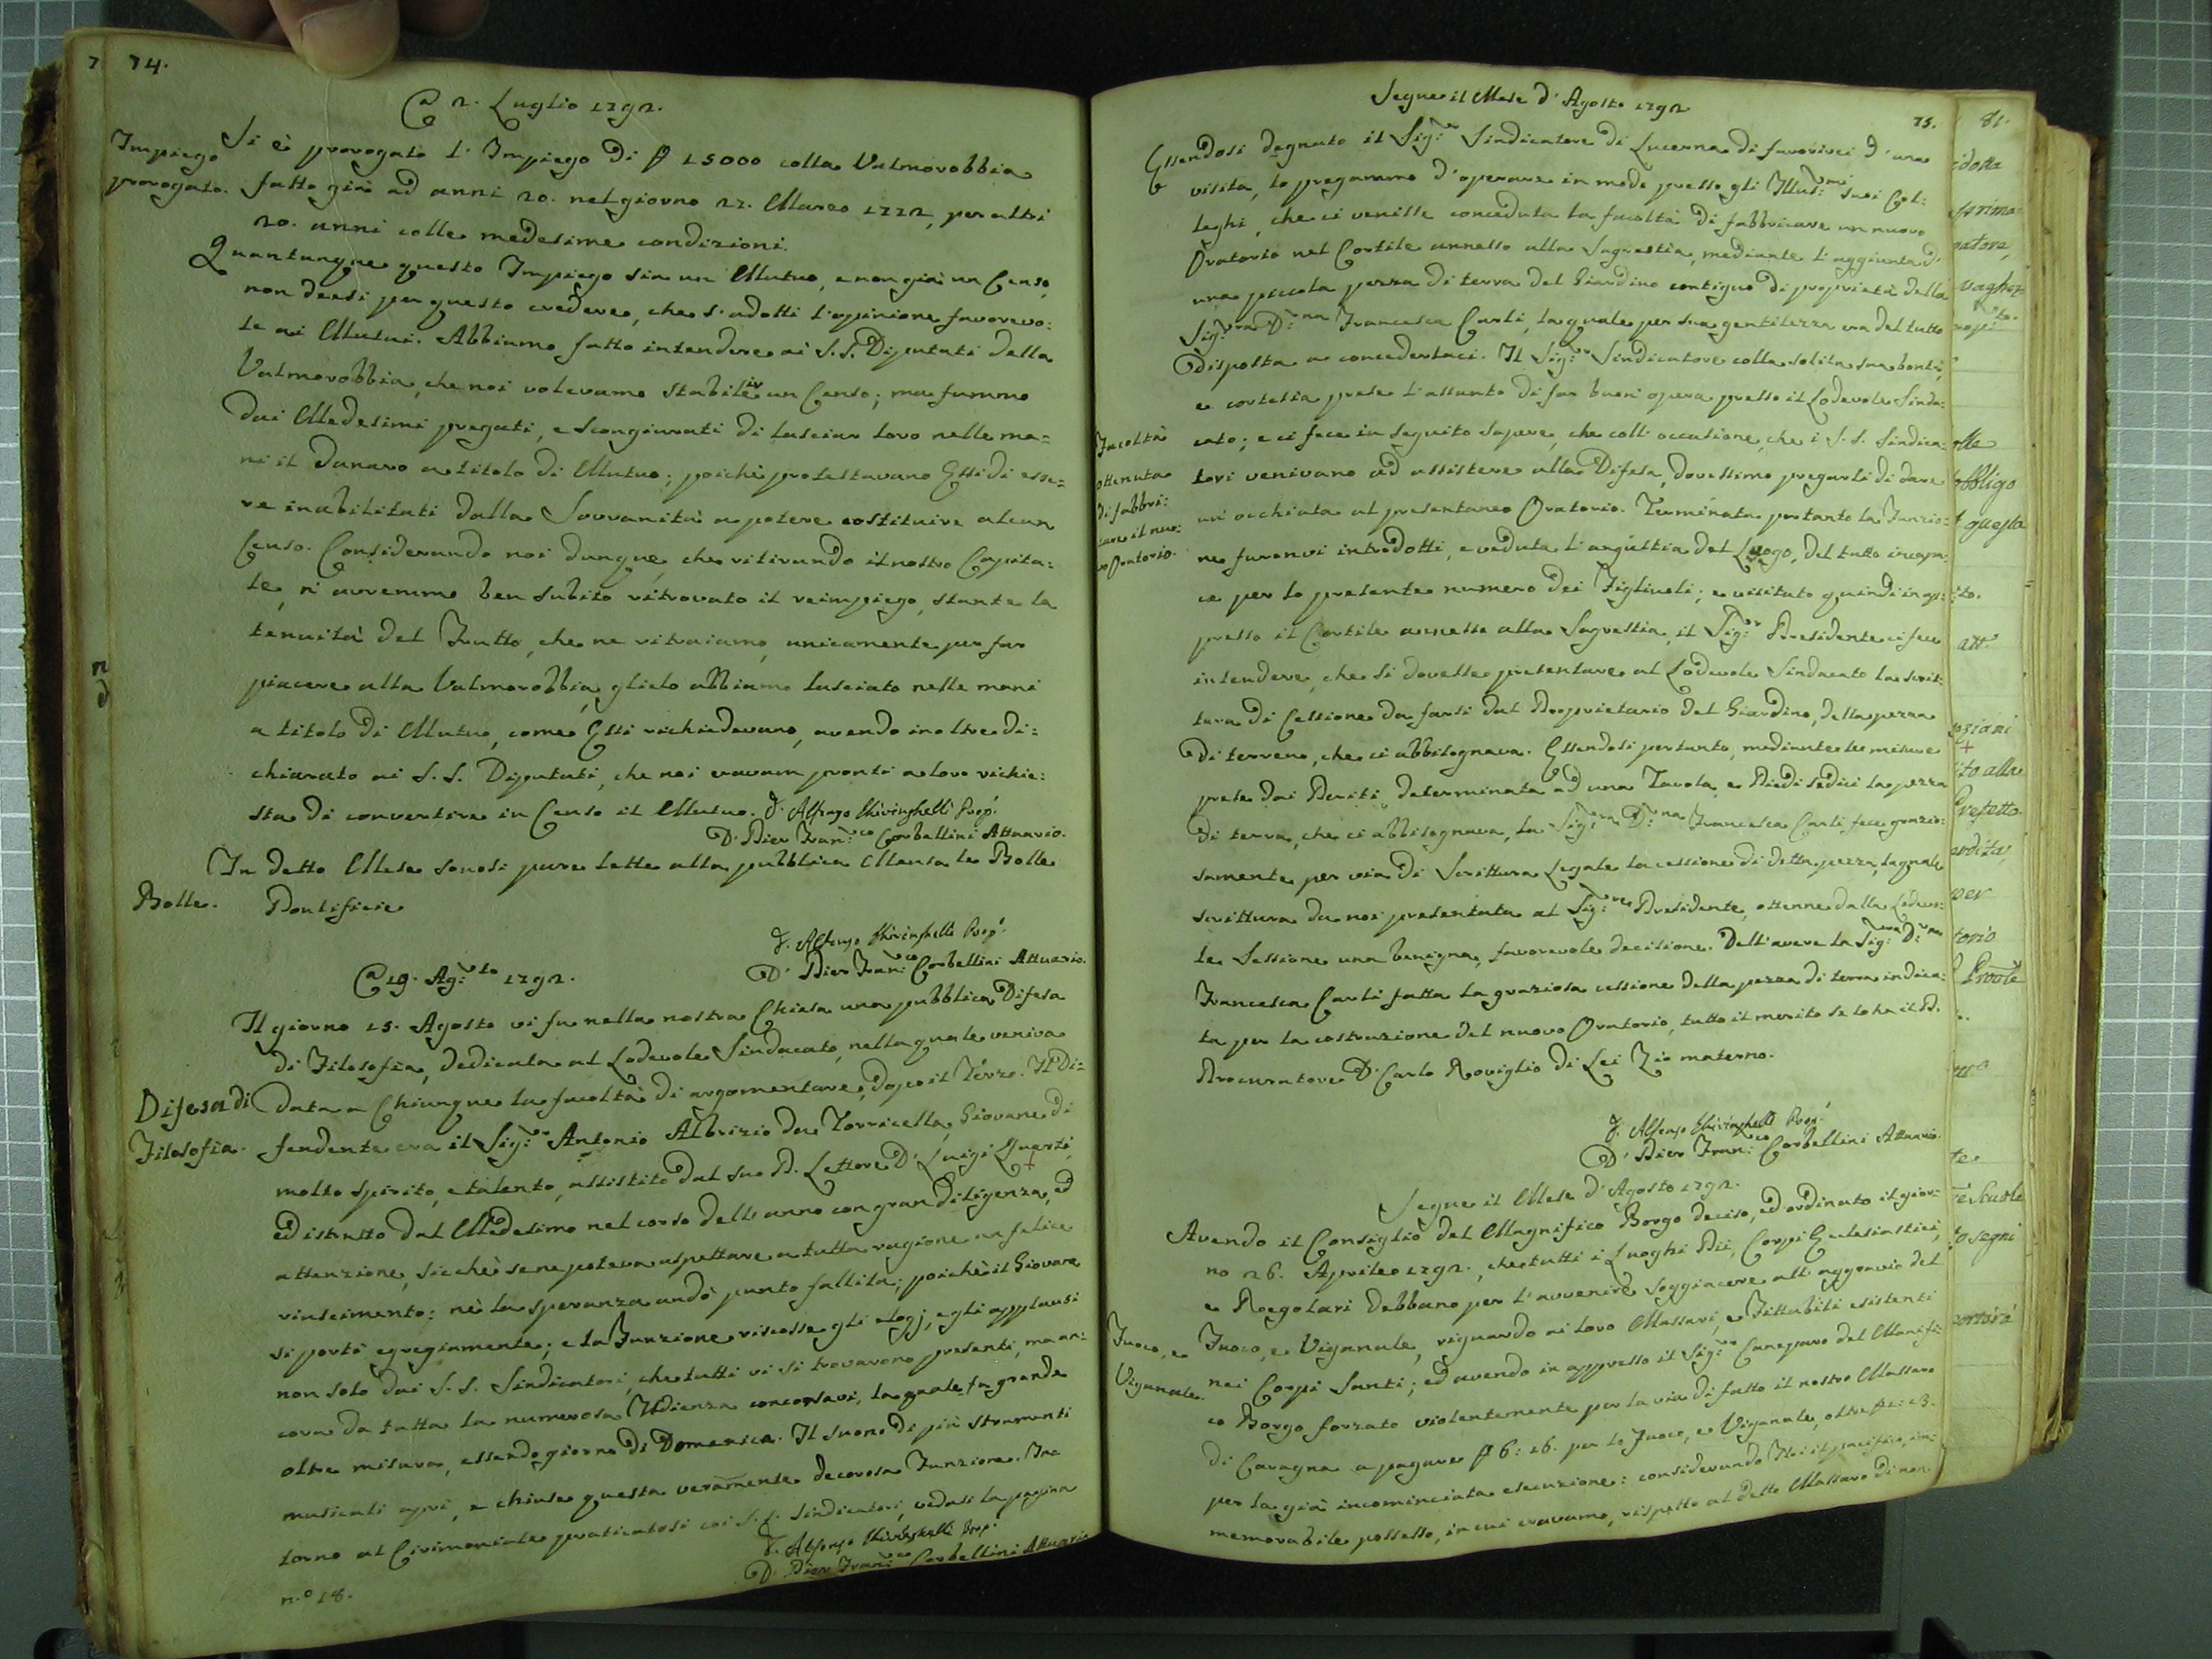 74.
@ 2. Luglio 1792.
Impiego
prorogato.
Si è prorogato l'Impiego di 15000 colla Valmorobbia
fatto già ad anni 20. nel giorno 27. Marzo 1772, per altri
20. anni colle medesime condizioni.
Quantunque questo Impiego sia un Mutuo, e non già un Censo,
non deesi per questo credere, che s'adotti l'opinione favorevo:
le ai Mutui. Abbiamo fatto intendere ai S.S. Diputati della
Valmorobbia, che noi volevamo stabilire un Censo; ma fummo
dai Medesimi pregati, e scongiurati di lasciar loro nelle ma=
ni il danaro a titolo di Mutuo; poichè protestavano Essi di esse=
re inabilitati dalla Sovranità a potere costituire alcun
Censo. Considerando noi dunque, che ritirando il nostro Capita=
le, n'avremmo ben subito ritrovato il reimpiego, stante la
tenuità del Frutto, che ne ritraiamo, unicamente per far
piacere alla Valmorobbia, glielo abbiamo lasciato nelle mani
a titolo di Mutuo, come Essi richiedevano, avendo inoltre di:
chiarato ai S.S. Diputati, che noi eravam pronti a loro richie:
sta di convertire in Censo il Mutuo. D. Alfonso Ghiringhelli Prop.
D. Pier Fran.co Corbellini Attuario.
Bolle.
In detto Mese sonosi pure lette alla pubblica Mensa le Bolle
Pontificie
D. Alfonso Ghiringhelli Prop.
D. Pier Fran.co Corbellini Attuario.
@ 19. Ag.sto 1792.
Il giorno 15. Agosto vi fu nella nostra Chiesa una pubblica Difesa
di Filosofia, dedicata al Lodevole Sindacato, nella quale veniva
Difesa di
Filosofia.
data a Chiunque la facoltà di argomentare, dopo il Terzo. Il Di=
fendente era il Sig.r Antonio Albrizio da Torricella, Giovane di
molto spirito, e talento, assistito dal suo P. Lettore D. Luigi Quarti,
ed istrutto dal Medesimo nel corso dell'anno con gran diligenza, ed
attenzione, sicchè se ne poteva aspettare a tutta ragione un felice
riuscimento: nè la speranza andò punto fallita; poichè il Giovane
si portò egregiamente; e la Funzione riscosse gli elogj, e gli applausi
non solo dai S.S. Sindicatori, che tutti vi si trovarono presenti, ma an:
cora da tutta la numerosa Udienza concorsavi, la quale fu grande
oltre misura, essendo giorno di Domenica. Il suono di più strumenti
musicali aprì, e chiuse questa veramente decorosa Funzione. In=
torno al Cirimoniale praticatosi coi S.S. Sindicatori, vedasi la pagina
n.o 18.
D. Alfonso Ghiringhelli Prop.
D. Pier Fran.co Corbellini Attuario
Segue il Mese d'Agosto 1792
75.
Essendosi degnato il Sig.r Sindicatore di Lucerna di favorirci d'una
visita, lo pregammo d'operare in modo presso gli Illus.mi suoi Col:
leghi, che ci venisse conceduta la facoltà di fabbricare un nuovo
Oratorio nel Cortile annesso alla Sagrestia, mediante l'aggiunta di
una piccola pezza di terra del Giardino contiguo di proprietà della
Sig.ra D.na Francesca Carli, la quale per sua gentilezza era del tutto
disposta a concederlaci. Il Sig.r Sindicatore colla solita sua bontà,
e cortesia prese l'assunto di far buoni opera presso il Lodevole Sinda:
Facoltà
ottenuta
di fabbri:
care il nuo:
vo Oratorio.
cato; e ci fece in seguito sapere, che coll'occasione, che i S.S. Sindica:
tori venivano ad assistere alla Difesa, dovessimo pregarli di dare
un'occhiata al presentaneo Oratorio. Terminata pertanto la Funzio:
ne furonvi introdotti, e veduta l'angustia del Luogo, del tutto incapa:
ce per lo presente numero dei Figliuoli; e visitato quindi in ap:
presso il Cortile annesso alla Sagrestia, il Sig.r Presidente ci fece
intendere, che si dovesse presentare al Lodevole Sindacato la scrit:
tura di Cessione da farsi dal Proprietario del Giardino, della pezza
di terreno, che ci abbisognava. Essendosi pertanto, mediante le misure
prese dai Periti, determinata ad una Tavola, e Piedi sedici la pezza
di terra, che ci abbisognava, la Sig.ra D.na Francesca Carli fece grazio:
samente per via di Scrittura Legale la cessione di detta pezza, la quale
scrittura da noi presentata al Sig.re Presidente, ottenne dalla Lodevo:
le Sessione una benigna, favorevole decisione. Dell'avere la Sig.ra D.na
Francesca Carli fatta la graziosa cessione della pezza di terra indica:
ta per la costruzione del nuovo Oratorio, tutto il merito se lo ha il P.
Procuratore D. Carlo Roviglio di Lei Zio materno.
D. Alfonso Ghiringhelli Prop.
D. Pier Fran.co Corbellini Attuario.
Segue il Mese d'Agosto 1792.
Avendo il Consiglio del Magnifico Borgo deciso, ed ordinato il gior:
no 26. Aprile 1792., che tutti i Luoghi Pii, Corpi Ecclesiastici,
e Regolari debbano per l'avvenire soggiacere all'aggravio del
Fuoco, e
Viganale.
Fuoco, e Viganale, riguardo ai loro Massari, e Fittabili esistenti
nei Corpi Santi; ed avendo in appresso il Sig.r Caneparo del Manifi:
co Borgo forzato violentemente per la via di fatto il nostro Massaro
di Caragna a pagare 6:16. per lo Fuoco, e Viganale, oltre 1:13.
per la già incominciata esecuzione: considerando Noi il pacifico, im:
memorabile possesso, in cui eravamo, rispetto al detto Massaro di non
81.
obbligo
questa
Prefetto
Scuole
segni